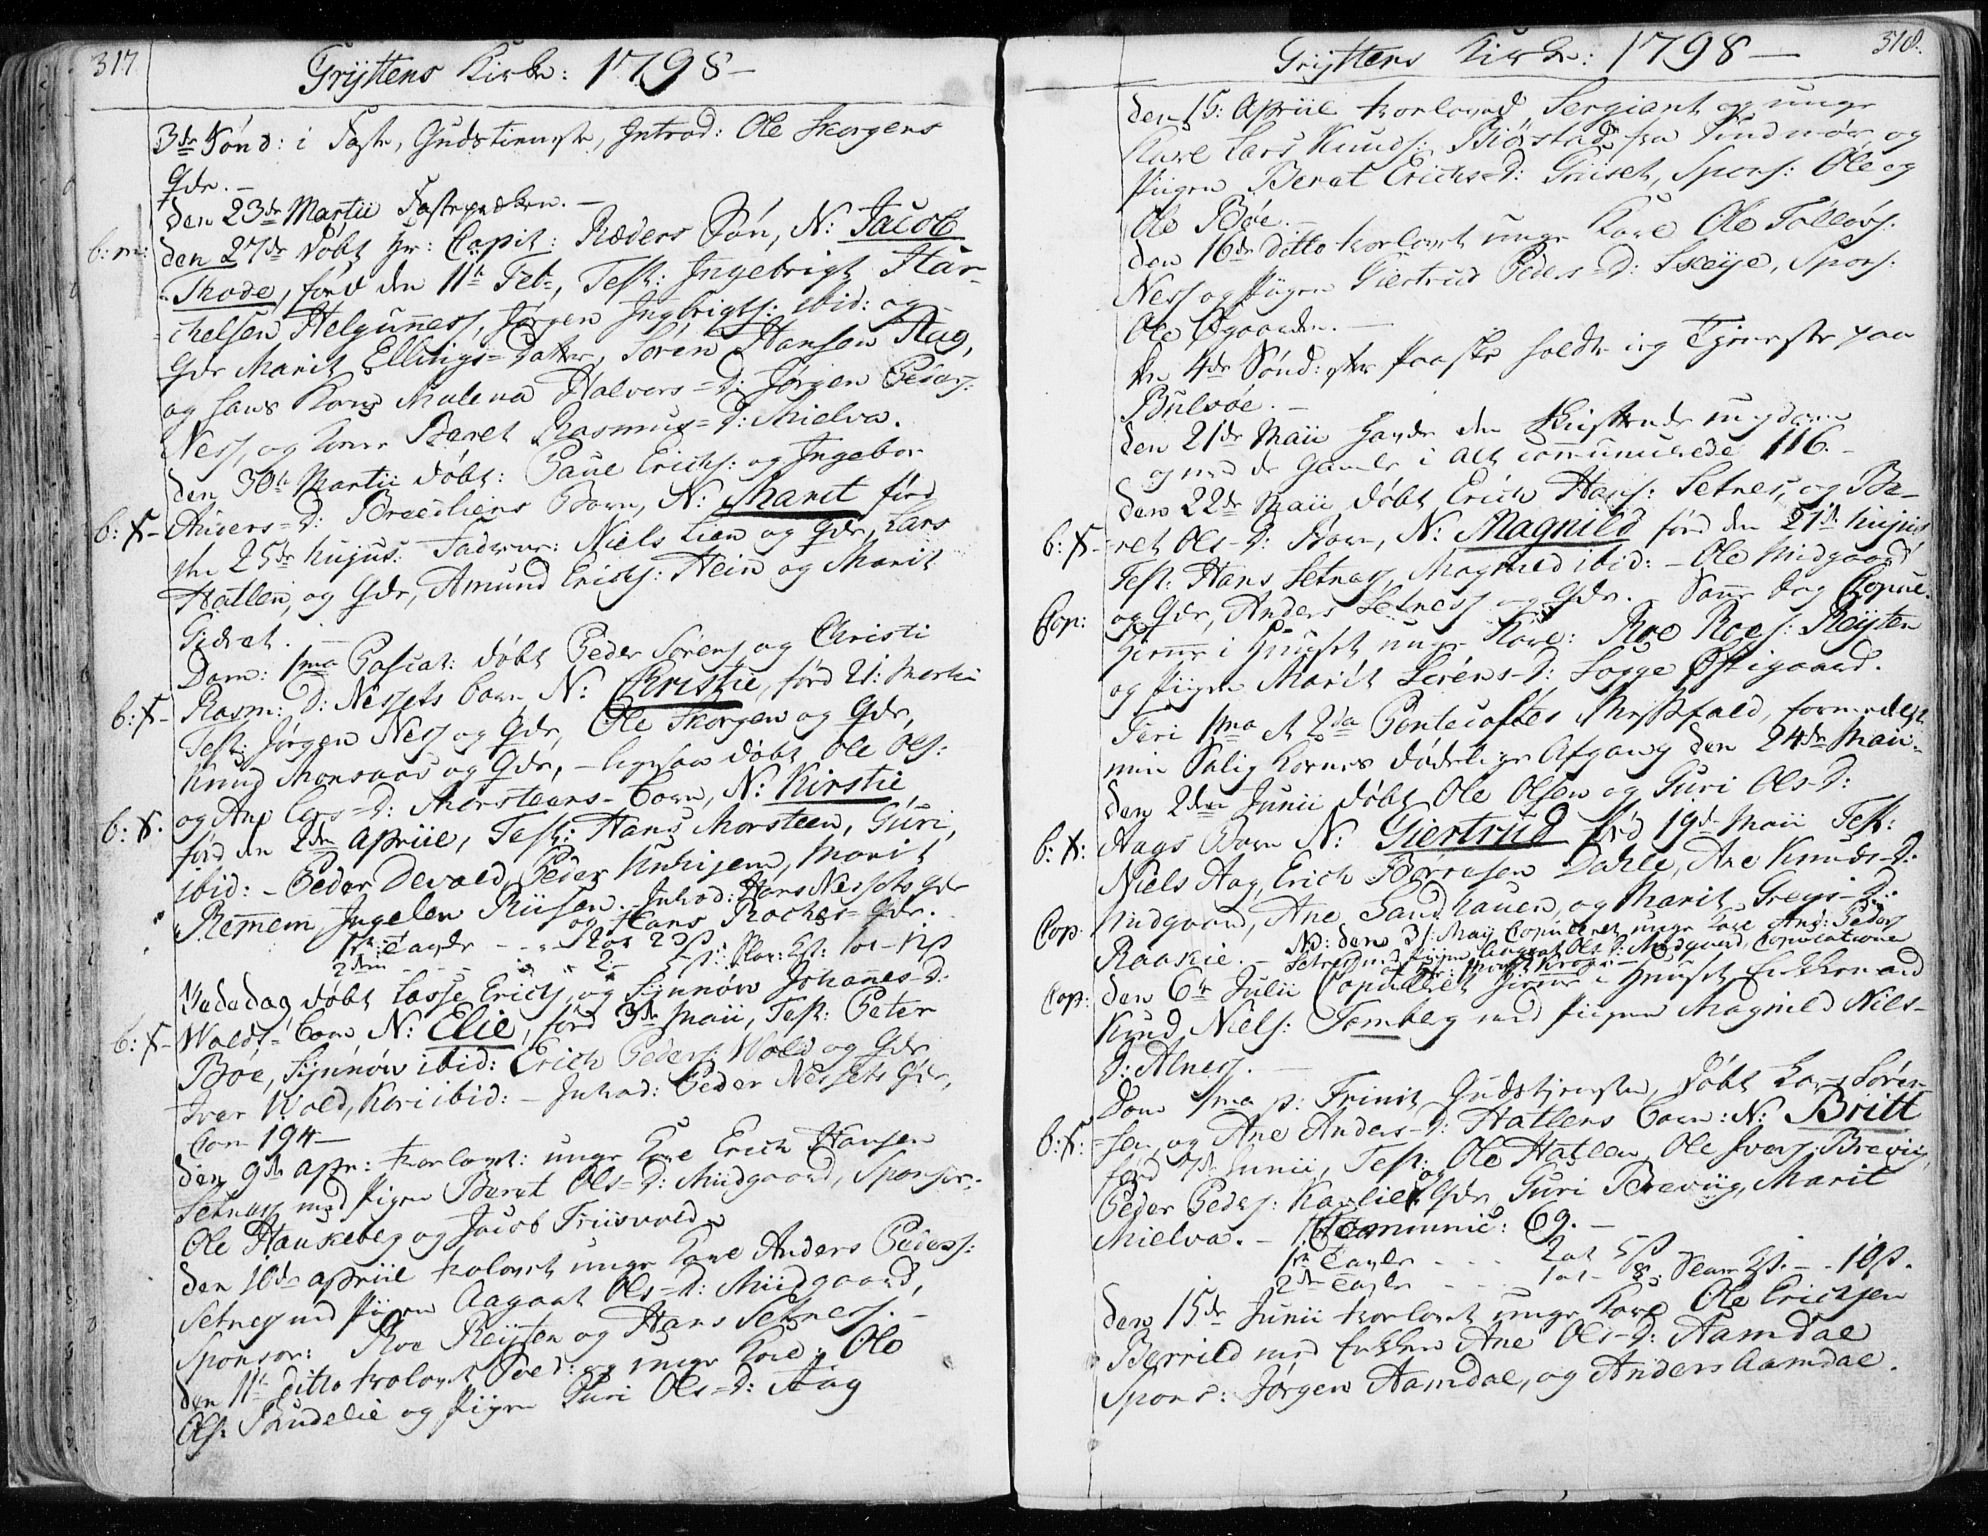 317.
Gryttens Kirke: 1798 –
3de Sønd: i Faste, Gudstieneste, Introd: Ole Skorgens
Qde. –
den 23de Martii Fasteprædiken. –
b: m: den 27de døbt Hr: Capit: Ræders Søn, N: Jacob
Thode, fød den 11te Feb, Test: Ingebrigt
Helguness, Jørgen Ingbrigts: ibid: og
Qde Marit Ellings-Datter, Søren Hanson Aag,
og hans Kone Malena Halvors-D: Jørgen Peders:
Ness, og Kone Beret Rasmus-D: Mielva.
den 30te Martii døbt: Paul Erichs: og Ingebor
b: X- Anders-D: Breedliens Barn, N: Marit fød
den 25de hujus. Faddere: Niels Lien og Qde, Lars
Hatlen, og Qde, Amund Erichs: Hein og Marit
Gidret. –
Dom: 1ma Pascat: døbt Peder Sørens og Christi
b: X- Rasm: D: Nessets barn N: Christie, fød 21: Martii
Test: Jørgen Ness og Qde, Ole Skorgen og Qde,
Knud Monsaas og Qde, – ligesaa døbt Ole Ols:
og Ane Lars-D: Morsteens- Barn, N: Kirstie
b: X. fød den 2den Apriil, Test: Hans Morsteen, Guri
ibid: – Peder Devold, Peder, Marit
Remem Ingelen Riisen. – Introd: Hans Nessets Qde
og Hans Roches Qde.
1ste Tavle - - - 2ort 2 ß
2den - - - 2
Bededag døbt Lasse Erichs og Synnøv Johannes-D:
b: X- Wolds- barn N: Elie, fød 3de Maii, Test: Peter
Bøe, Synnøv ibid: Erich Peders: Wold og Qde
Iver Wold, Kari ibid: – Introd: Peder Nessets Qde,
Com 194 –
den 9de Apr: trolovet: unge Karl Erich Hansen
Setness med Pigen Beret Ols-D: Miidgaard, Sponsor:
Ole Haukeberg og Jacob Friisvold
den 10de Apriil trolovet unge Karl Anders Peders:
Setness med Pigen Aagaat Ols-D: Miidgaard,
Sponsor: Roe Reijten og Hans Setness. –
den 11te ditto trolovet Soed: og unge Karl: Ole
Ols: Sudelie og Pigen Guri Ols-D: Aag
318.
Gryttens Kirke: 1798 –
den 15: Apriil trolovet Sergiant og unge
Karl Lars Knuds: Biørstad fra Sundmør og
Pigen Beret Erichs-D: Griset, Spons: Ole og
Ole Bøe. –
den 16de ditto trolovet unge Karl Ole Tollevs:
Ness og Pigen Giertrud Peders-D: Skeije, Spons:
Ole Øgaarden. –
den 4de Sønd: efter Paaske holdt ieg Tjeneste paa
Bulsøe. –
den 21de Maii havde den Skriftende ungdom
og med de Gamle i alt communicerede 116. –
den 22de Maii døbt Erich Hans: Setness, og Be-
b: X- ret Ols-D: Barn, N: Magnild fød den 21de hujus
Test: Hans Setness, Magnild ibid: – Ole Midgaard
Cop: og Qde, Anders Setness og Qde. – Samme dag Copule:
hjemme i Huuset unge Karl: Roe Roes: Reijten
og Pigen Marit Sørens-D: Sogge Østigaard.
Feri 1ma et 2da Pentecostes Messefald, formedelst
min Salig Kones dødelige Afgang den 24de Maii. –
den 2den Junii døbt Ole Olsen og Guri Ols-D:
b: X: Aags Barn N: Giertrud fød 19de Maii Test:
Niels Aag, Erich Børresen Dahle, Ane Knuds-D:
Midgaard, Ane Sandhauen, og Marit Greus-D:
Cop. Raakie. – NB: den 31: Maij Copuleret unge Karl And: Peders
Setness med Pigen Aagaat Ols D: Midgaard, Copulationen
af Hr:
Cop: den 6te Julii Copuleret hjemme i Huuset Enkemand
Knud Niels: Tomberg med Pigen Magnild Niels-
D: Alness. –
Dom 1ma p: Trinit Gudstjeneste, døbt Lars Søren-
b: X: sen, og Ane Anders-D: Hatlens Barn: N: Britt
fød 7de Junii, Test: Ole Hatlen, Ole Ivers: Brevig,
Peder Peders: Karlie og Qde, Guri Breviig, Marit
Mielva. – Communic: 69. –
1ste Tavle - - - 2ort 5 ß
2de Tavle - - - 1ort - 8.
den 15de Junii trolovet unge Karl Ole Erichsen
Berrild med Enken Ane Ols-D: Aamdal
Spons: Jørgen Aamdal, og Anders Aamdal.